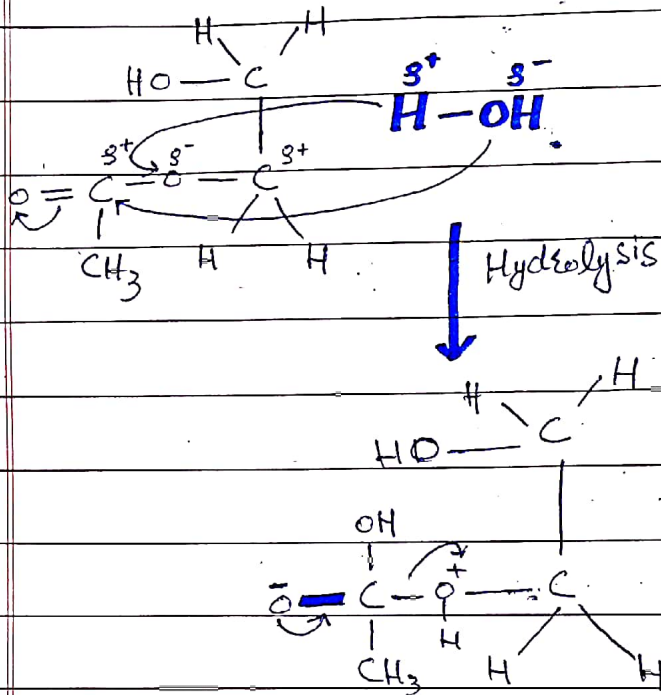 H H
HO — C δ+ δ-
H — OH
δ+ δ- δ+
O = C — O — C
CH3 H H
Hydrolysis
H H
HO — C
OH
- +
O — C — O — C
H
CH3 H H